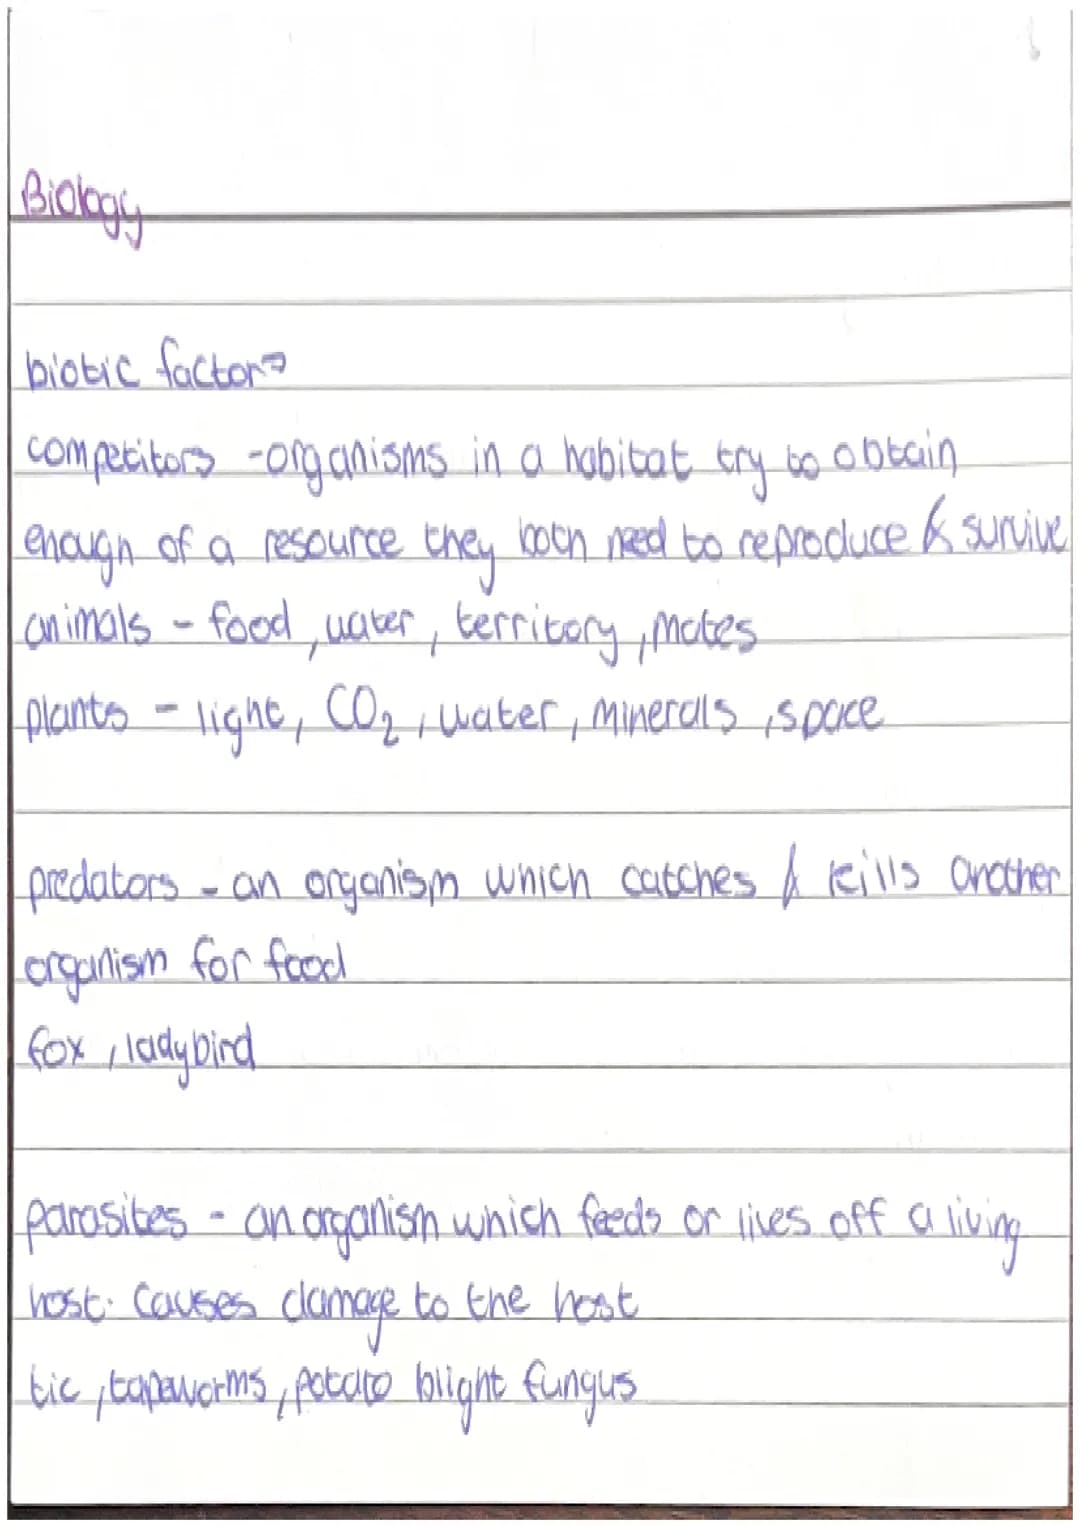 Biology
biotic factors
competitors - organisms in a habitat try to obtain
enough of a resource they both need to reproduce & survive
animals - food, water, territory, mates
plants - light, CO₂, water, minerals, space
predators - an organism which catches & kills another
organism for food
fox, ladybird
parasites - an organism which feeds or lives off a living
host. Causes damage to the host
tic, tapeworms, potato blight fungus